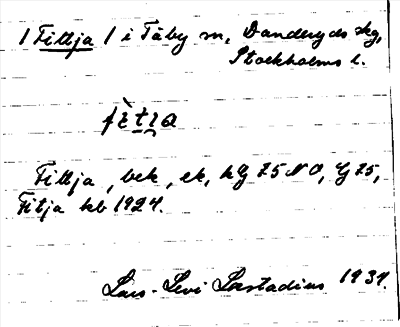 / Fittja / i Täby sn, Danderyds skg,
Stockholms l.
Fittja, bek, ek, kg 75 NO, Gg 75,
Fitja kb 1924.
Lars-Levi Læstadius 1934.